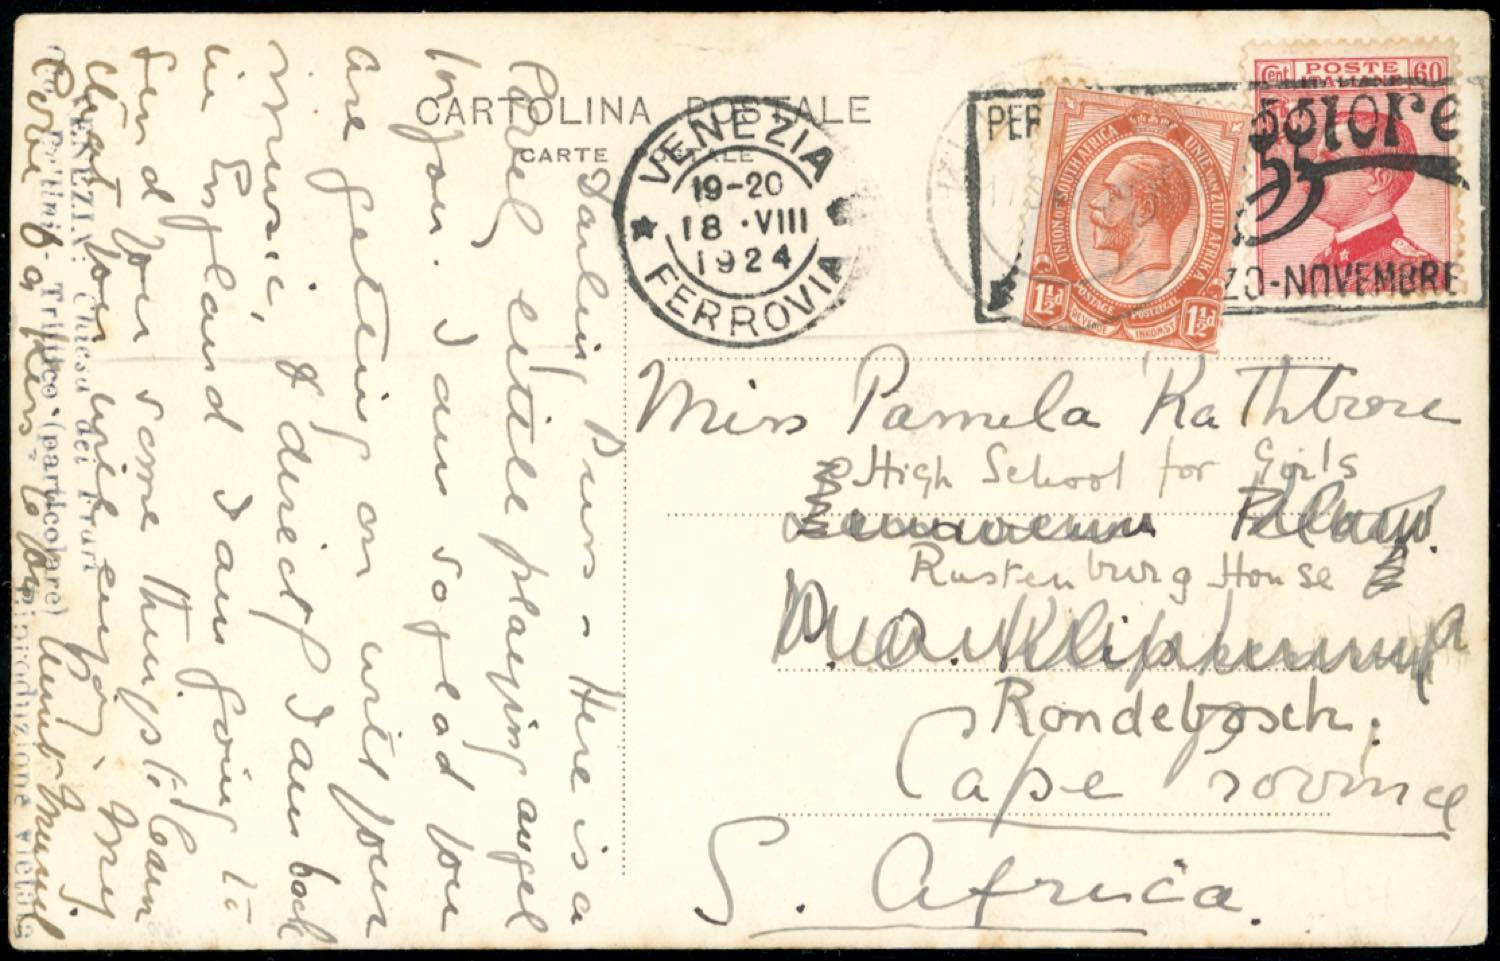 CARTOLINA POSTALE
CARTE POSTALE
VENEZIA
19-20
18 · VIII
1924
FERROVIA
PER
30-NOVEMBRE
POSTE
ITALIANE
Cent
60
UNION OF SOUTH AFRICA
UNIE VAN ZUID AFRIKA
POSTAGE
POSTZEGEL
REVENUE
INKOMST
1½d
1½d
Miss Pamela Rathbone
High School for Girls
Rustenburg House
P.O. Klip
Rondebosch.
Cape Province
S. Africa.
Darling Puss - Here is a
Pavel little playing angel
for you. I am so glad you
are getting on with your
music, & directly I am back
in England I am going to
send you some things I can
that you will enjoy. My
love & a kiss to you
VENEZIA: Chiesa dei Frari
Bellini - Trittico (particolare)
Riproduzione vietata